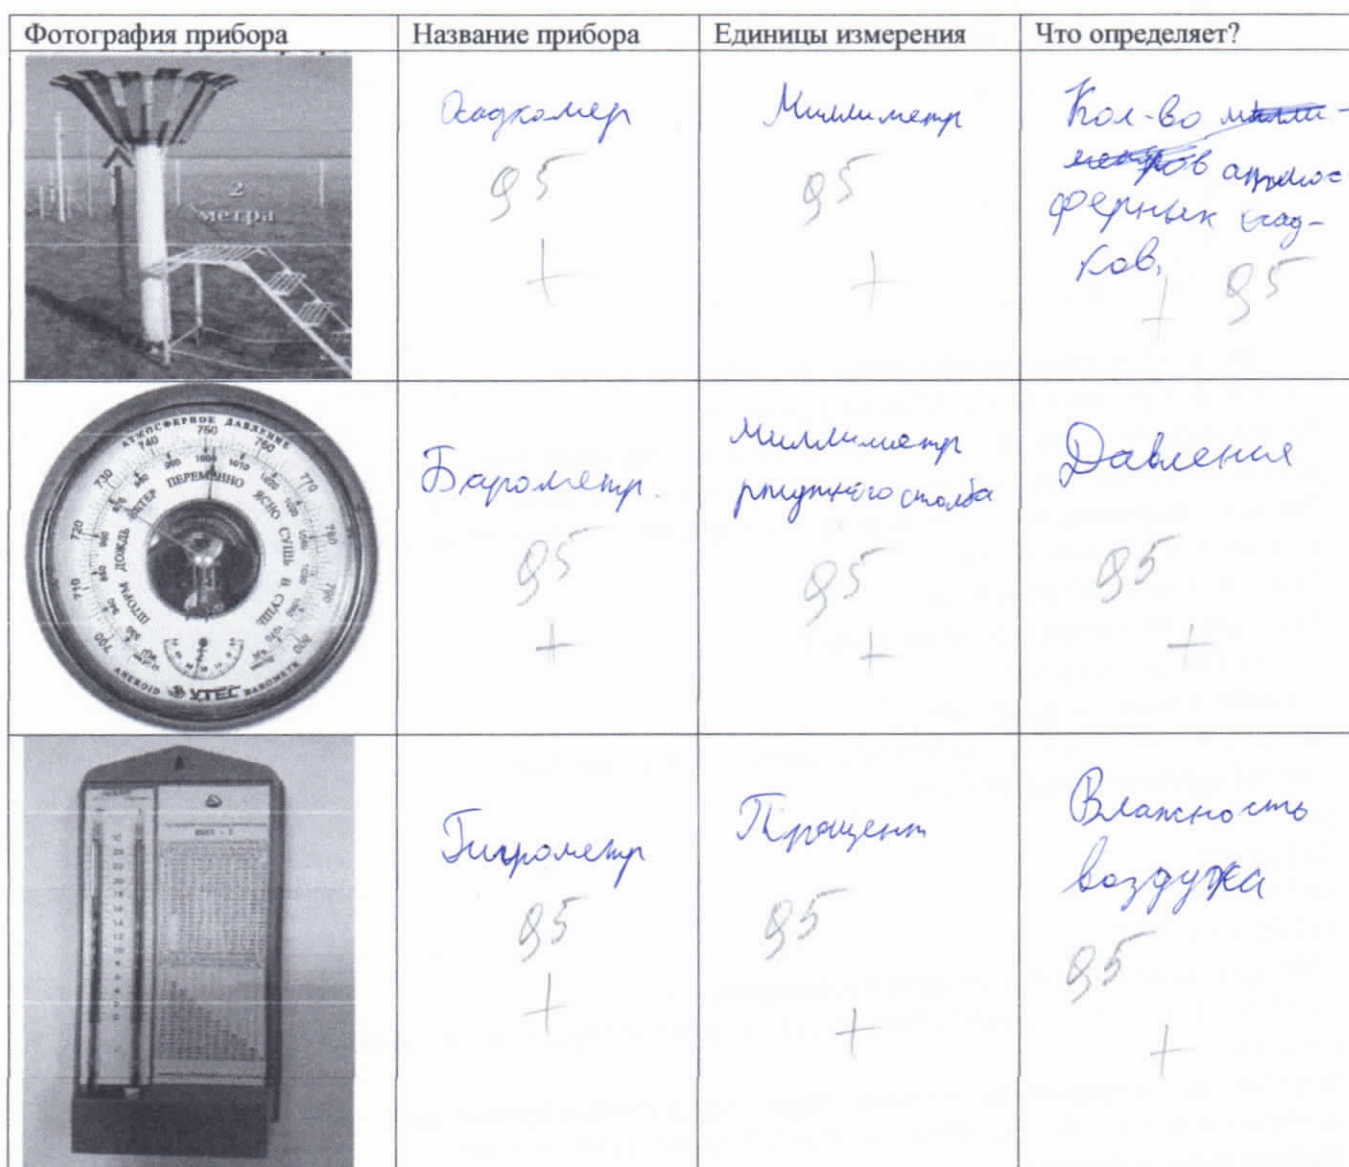 Фотография прибора
Название прибора
Единицы измерения
Что определяет?
2
метра
Осадкомер
95
+
Миллиметр
95
+
Кол-во милли-
метров атмос
ферных осад-
ков,
+ 95
АТМОСФЕРНОЕ ДАВЛЕНИЕ
700 710 720 730 740 750 760 770 780 790 800
ШТОРМ ДОЖДЬ ВЕТЕР ПЕРЕМЕННО ЯСНО СУШЬ В. СУШЬ
ANEROID UTEC BAROMETR
Барометр.
95
+
миллиметр
ртутного столба
95
+
Давления
95
+
Гигрометр
95
+
Процент
95
+
Влажность
воздуха
95
+